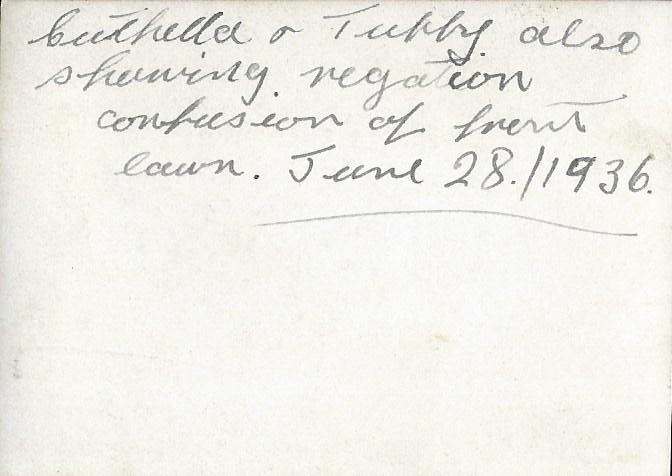 Cuthella & Tubby also
showing regation
confusion of front
lawn. June 28./1936.